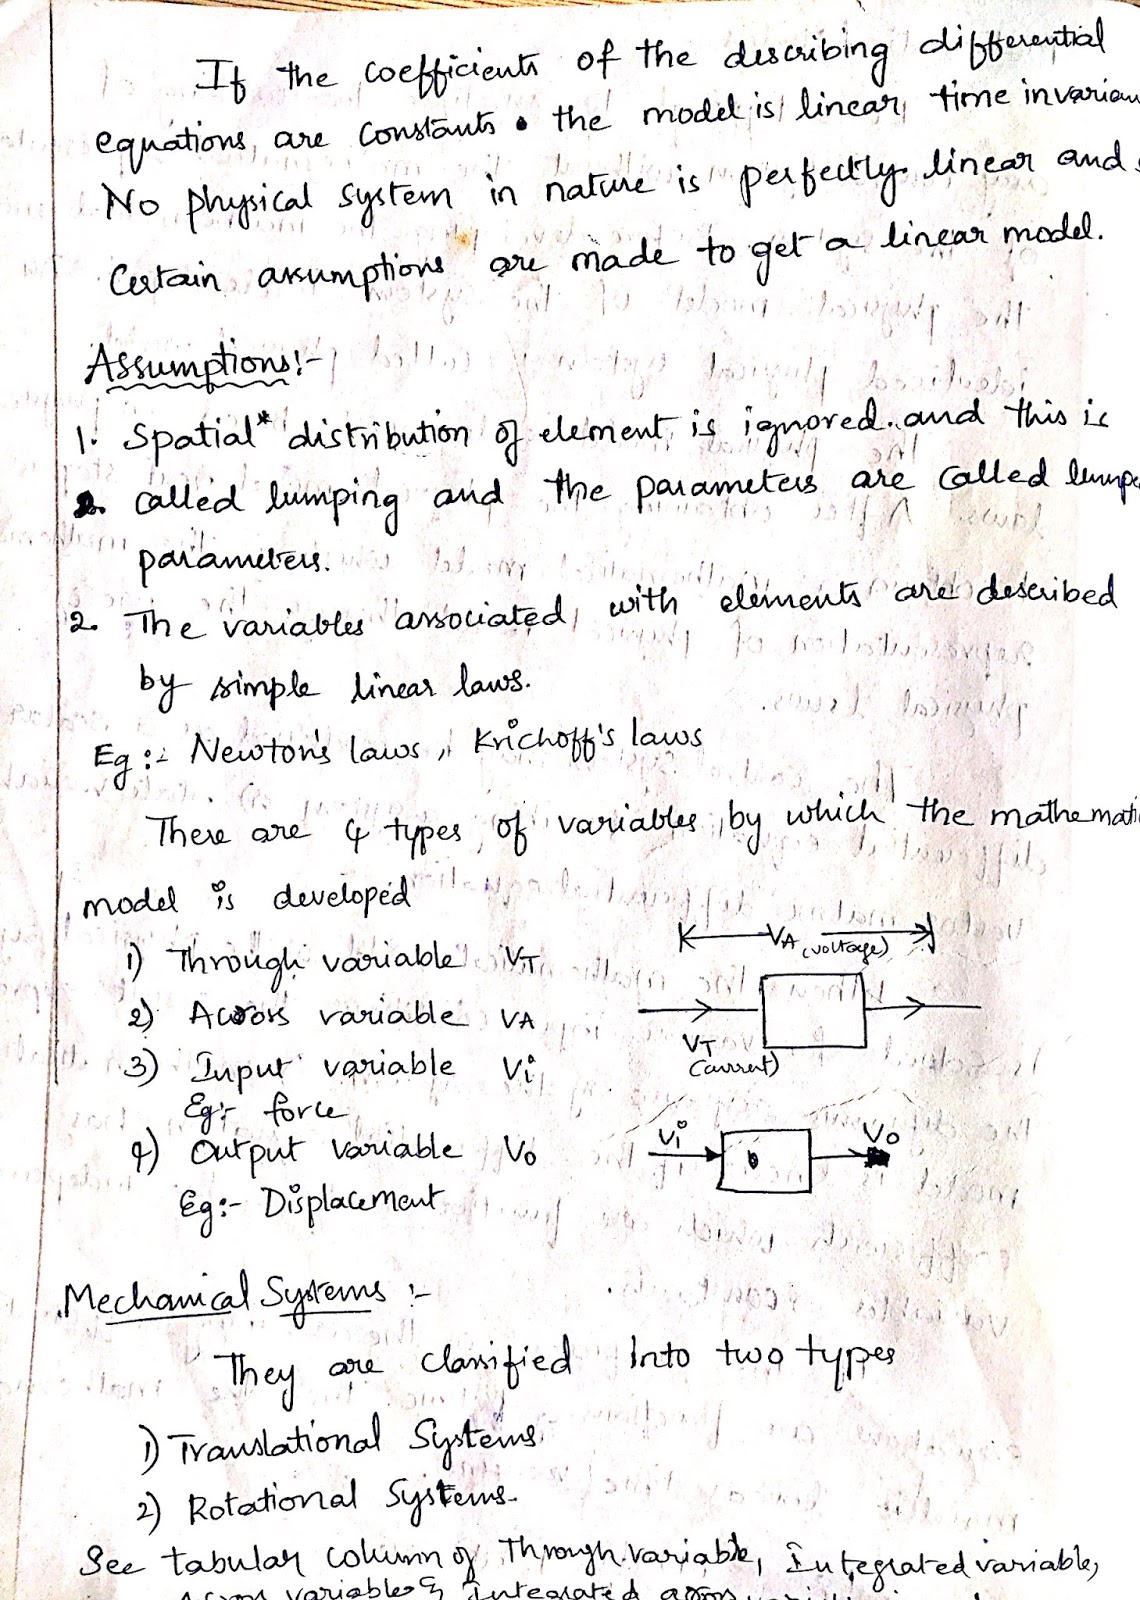 If the coefficients of the describing differential
equations, are constants. the model is linear, time invarian
No physical system in nature is perfectly linear and
Certain assumptions are made to get a linear model.
Assumptions:-
1. Spatial* distribution of element is ignored. and this is
called lumping and the parameters are called lumpe
parameters.
2. The variables associated, with elements are described
by simple linear laws.
Eg:- Newton's laws, Krichoff's laws
There are 4 types of variables, by which the mathemati
model is developed
1) Through variable VT
2) Across variable VA
3) Input variable Vi
Eg:- force
4) Output variable Vo
Eg:- Displacement
VA (voltage)
VT
(current)
Vi
Vo
Mechanical Systems :-
They are classified Into two types
1) Translational Systems
2) Rotational Systems.
See tabular column of Through variable, Integrated variable,
Across variables & Integrated across